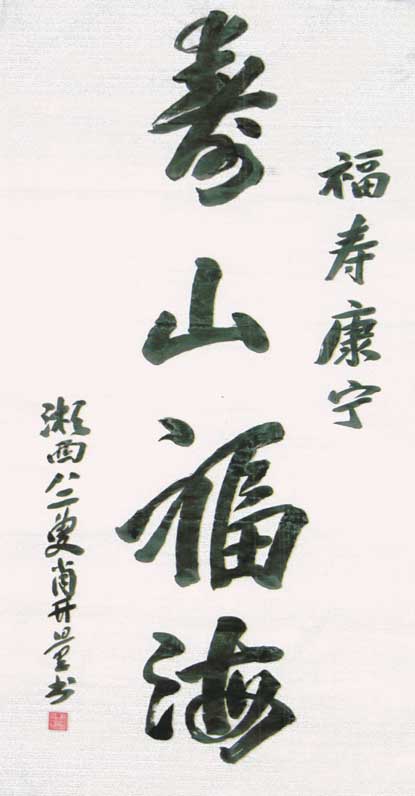 福寿康宁
寿山福海
湘西八二叟肖开量书